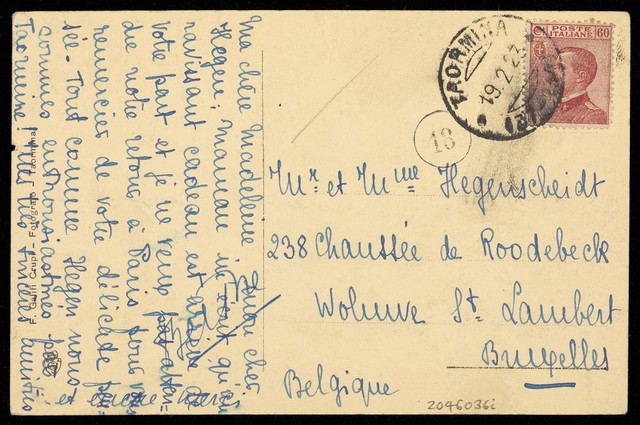 Ma chère Madeleine mon cher
Hegen; Maman écrit qu'un
ravissant cadeau est arrivé de
votre part et je ne veux pas atten-
dre notre retour à Paris pour vous
remercier de votre délicate pen-
sée - Tout comme Hegen nous
sommes enthousiasmés par
Taormine! Mes très sincères amitiés
et
F. Galifi Crupi - Fotografo - Taormina
POSTE
ITALIANE
60
TAORMINA
19.2.23
18
Mr et Mme Hegenscheidt
238 Chaussée de Roodebeck
Woluwe St. Lambert
Bruxelles
Belgique
2046036i